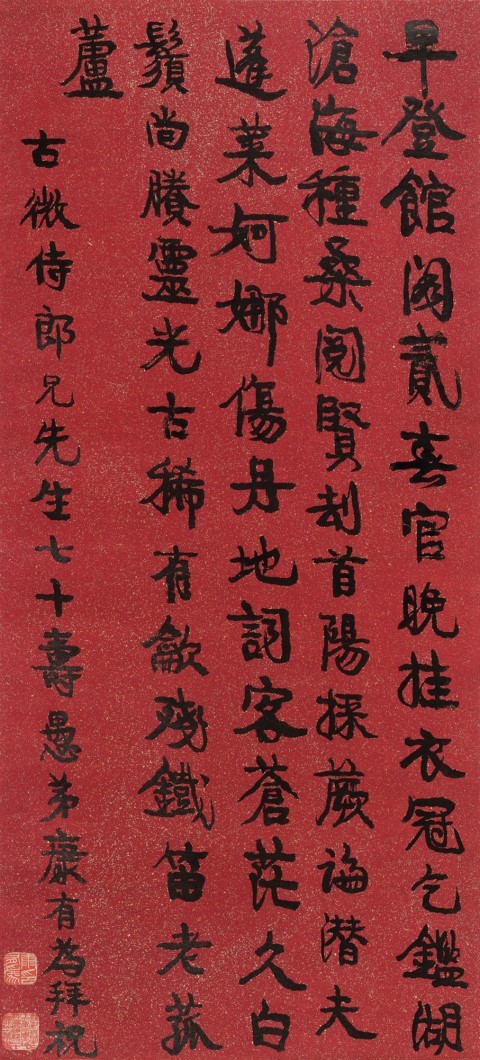 早登館閣貳春官晚挂衣冠乞鑑湖
滄海種桑閱賢劫首陽採蕨論潛夫
蓬萊婀娜傷丹地詞客蒼茫久白
鬚尚賸靈光古稀有龡殘鐵笛老菰
蘆
古微侍郎兄先生七十壽愚弟康有為拜祝